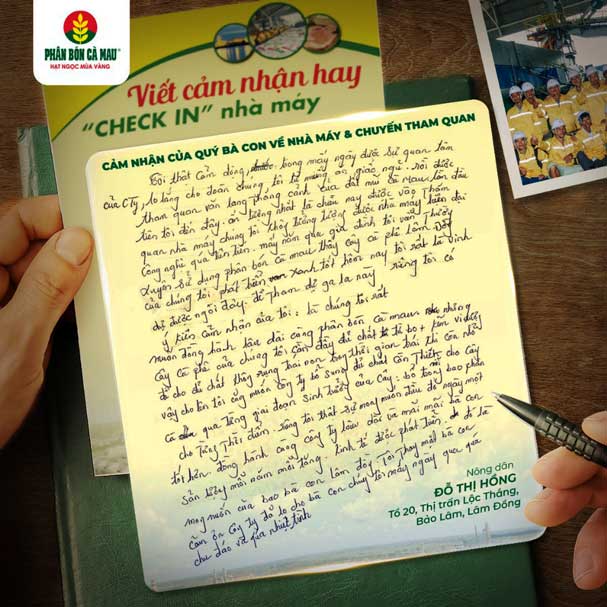 PHÂN BÓN CÀ MAU
HẠT NGỌC MÙA VÀNG
Viết cảm nhận hay
"CHECK IN" nhà máy
CẢM NHẬN CỦA QUÝ BÀ CON VỀ NHÀ MÁY & CHUYẾN THAM QUAN
Tôi thật cảm động, trong mấy ngày được sự quan tâm
của Cty, lo lắng cho đoàn chúng tôi từ ăn, giấc ngủ. rồi được
tham quan văn lang phong cảnh của đất mũi cà Mau lần đầu
tiên tôi đến đây. ấn tiếng nhất là chiều nay được vào thăm
quan nhà máy chúng tôi không tưởng được nhà máy hiện đại
công nghệ quá tiên tiến. mấy năm qua gia đình tôi vẫn thường
xuyên sử dụng phân bón cà mau thấy cây cà phê lâm đồng
của chúng tôi phát triển xanh tốt hôm nay tôi rất là vinh
dự được ngồi đây để tham dự ga la này
ý kiến cảm nhận của tôi: là chúng tôi rất
muốn đồng hành lâu dài cùng phân bón cà mau những
cây cà phê của chúng tôi cần đầy đủ chất
để cho đủ chất thấy rụng trái non hay thời gian bài thì còn nhỏ
vậy cho lên tôi muốn công ty bổ sung đủ chất cần thiết cho cây
cà qua từng giai đoạn sinh trưởng của cây:
cho từng thời điểm. lòng tôi thật sự mong muốn đều đó ngày một
tốt hơn đồng hành cùng công ty lâu dài và mãi mãi bà con
sản lượng mỗi năm mỗi tăng. kinh tế được phát triển. đó là
mong muốn của bao bà con lâm đồng Tôi thay mặt bà con
cảm ơn công ty đã lo cho bà con chúng tôi mấy ngày qua quá
chu đáo và quá nhiệt tình
Nông dân
ĐỖ THỊ HỒNG
Tổ 20, Thị trấn Lộc Thắng,
Bảo Lâm, Lâm Đồng